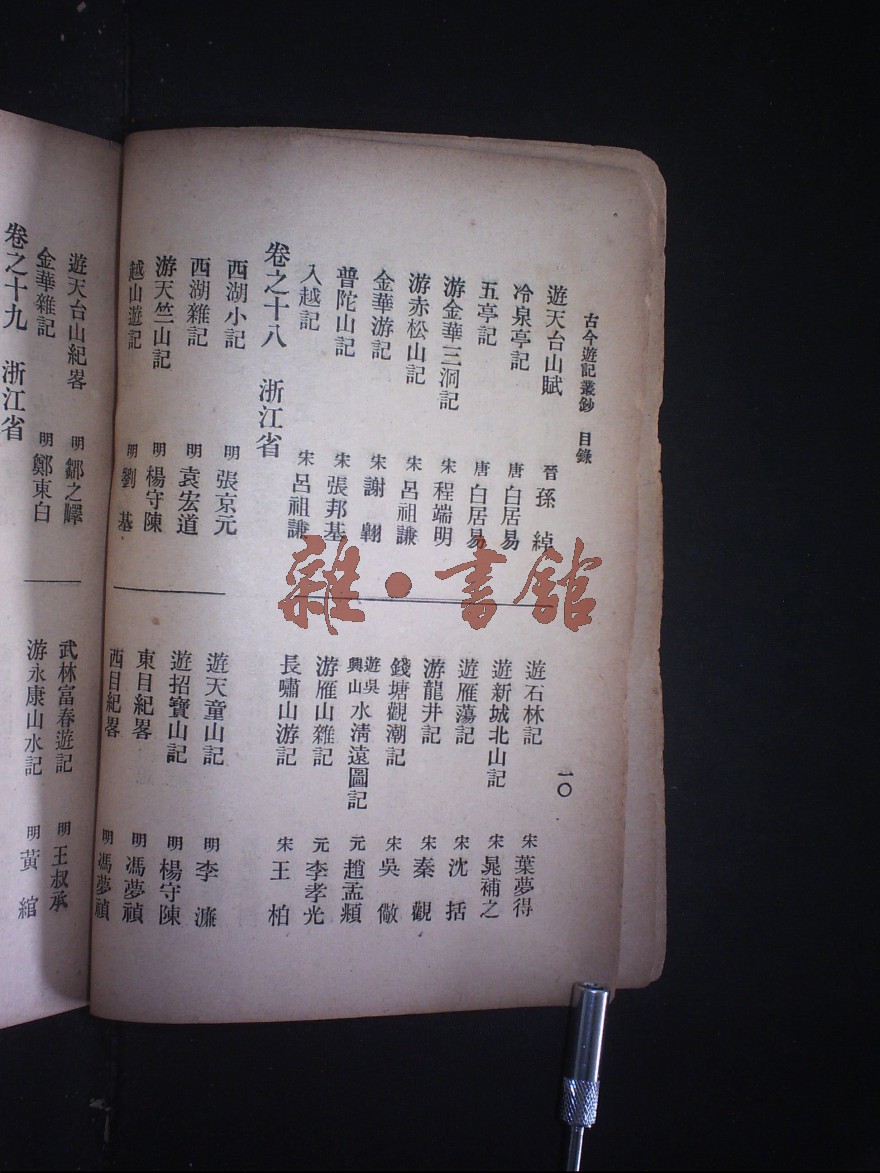 古今遊記叢鈔　目錄　一〇
遊天台山賦　晉　孫綽
冷泉亭記　唐　白居易
五亭記　唐　白居易
游金華三洞記　宋　程端明
游赤松山記　宋　呂祖謙
金華游記　宋　謝翱
普陀山記　宋　張邦基
入越記　宋　呂祖謙
遊石林記　宋　葉夢得
遊新城北山記　宋　晁補之
遊雁蕩記　宋　沈括
游龍井記　宋　秦觀
錢塘觀潮記　宋　吳儆
遊吳興山水清遠圖記　元　趙孟頫
游雁山雜記　元　李孝光
長嘯山游記　宋　王柏
卷之十八　浙江省
西湖小記　明　張京元
西湖雜記　明　袁宏道
游天竺山記　明　楊守陳
越山遊記　明　劉基
遊天童山記　明　李濂
遊招寶山記　明　楊守陳
東目紀畧　明　馮夢禎
西目紀畧　明　馮夢禎
遊天台山紀畧　明　鄒之嶧
金華雜記　明　鄭東白
武林富春遊記　明　王叔承
游永康山水記　明　黃綰
卷之十九　浙江省
雜·書館